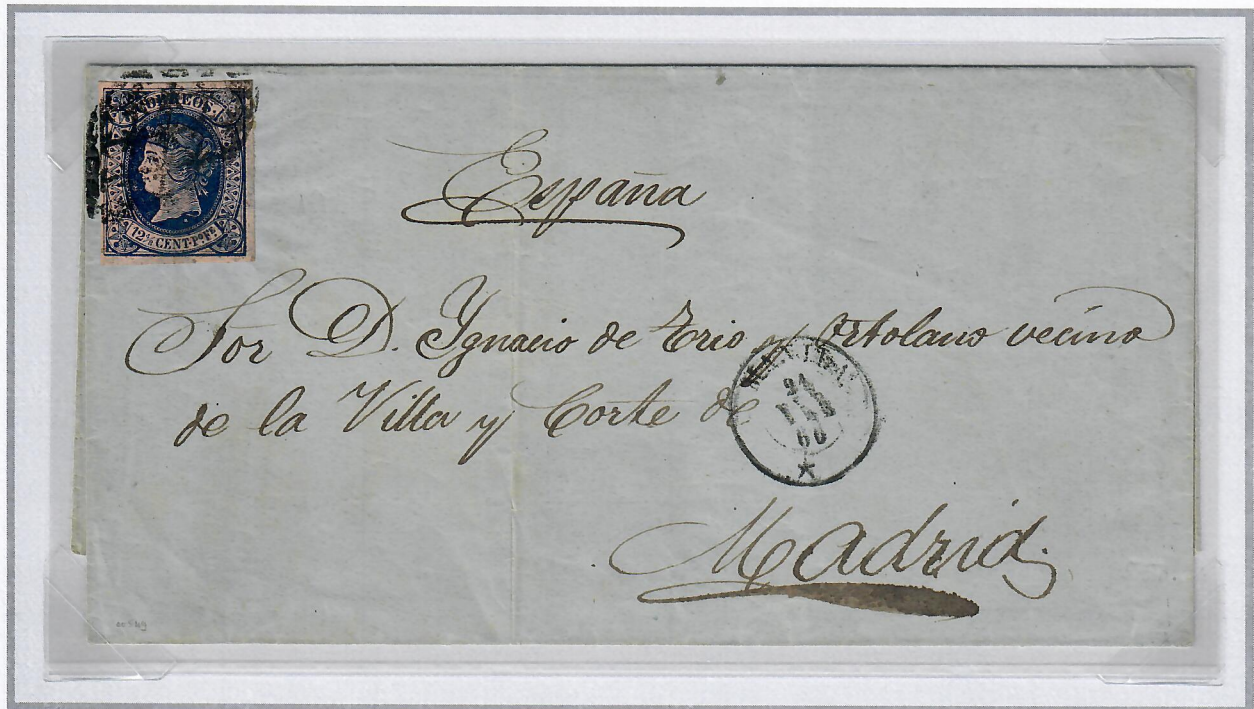 CORREOS.
12 4/8 CENT. Pº Fᵉ
España
Sor D. Ygnacio de Erio y Ortolano vecino
de la Villa y Corte de
MANILA
24
FEB
66
Madrid.